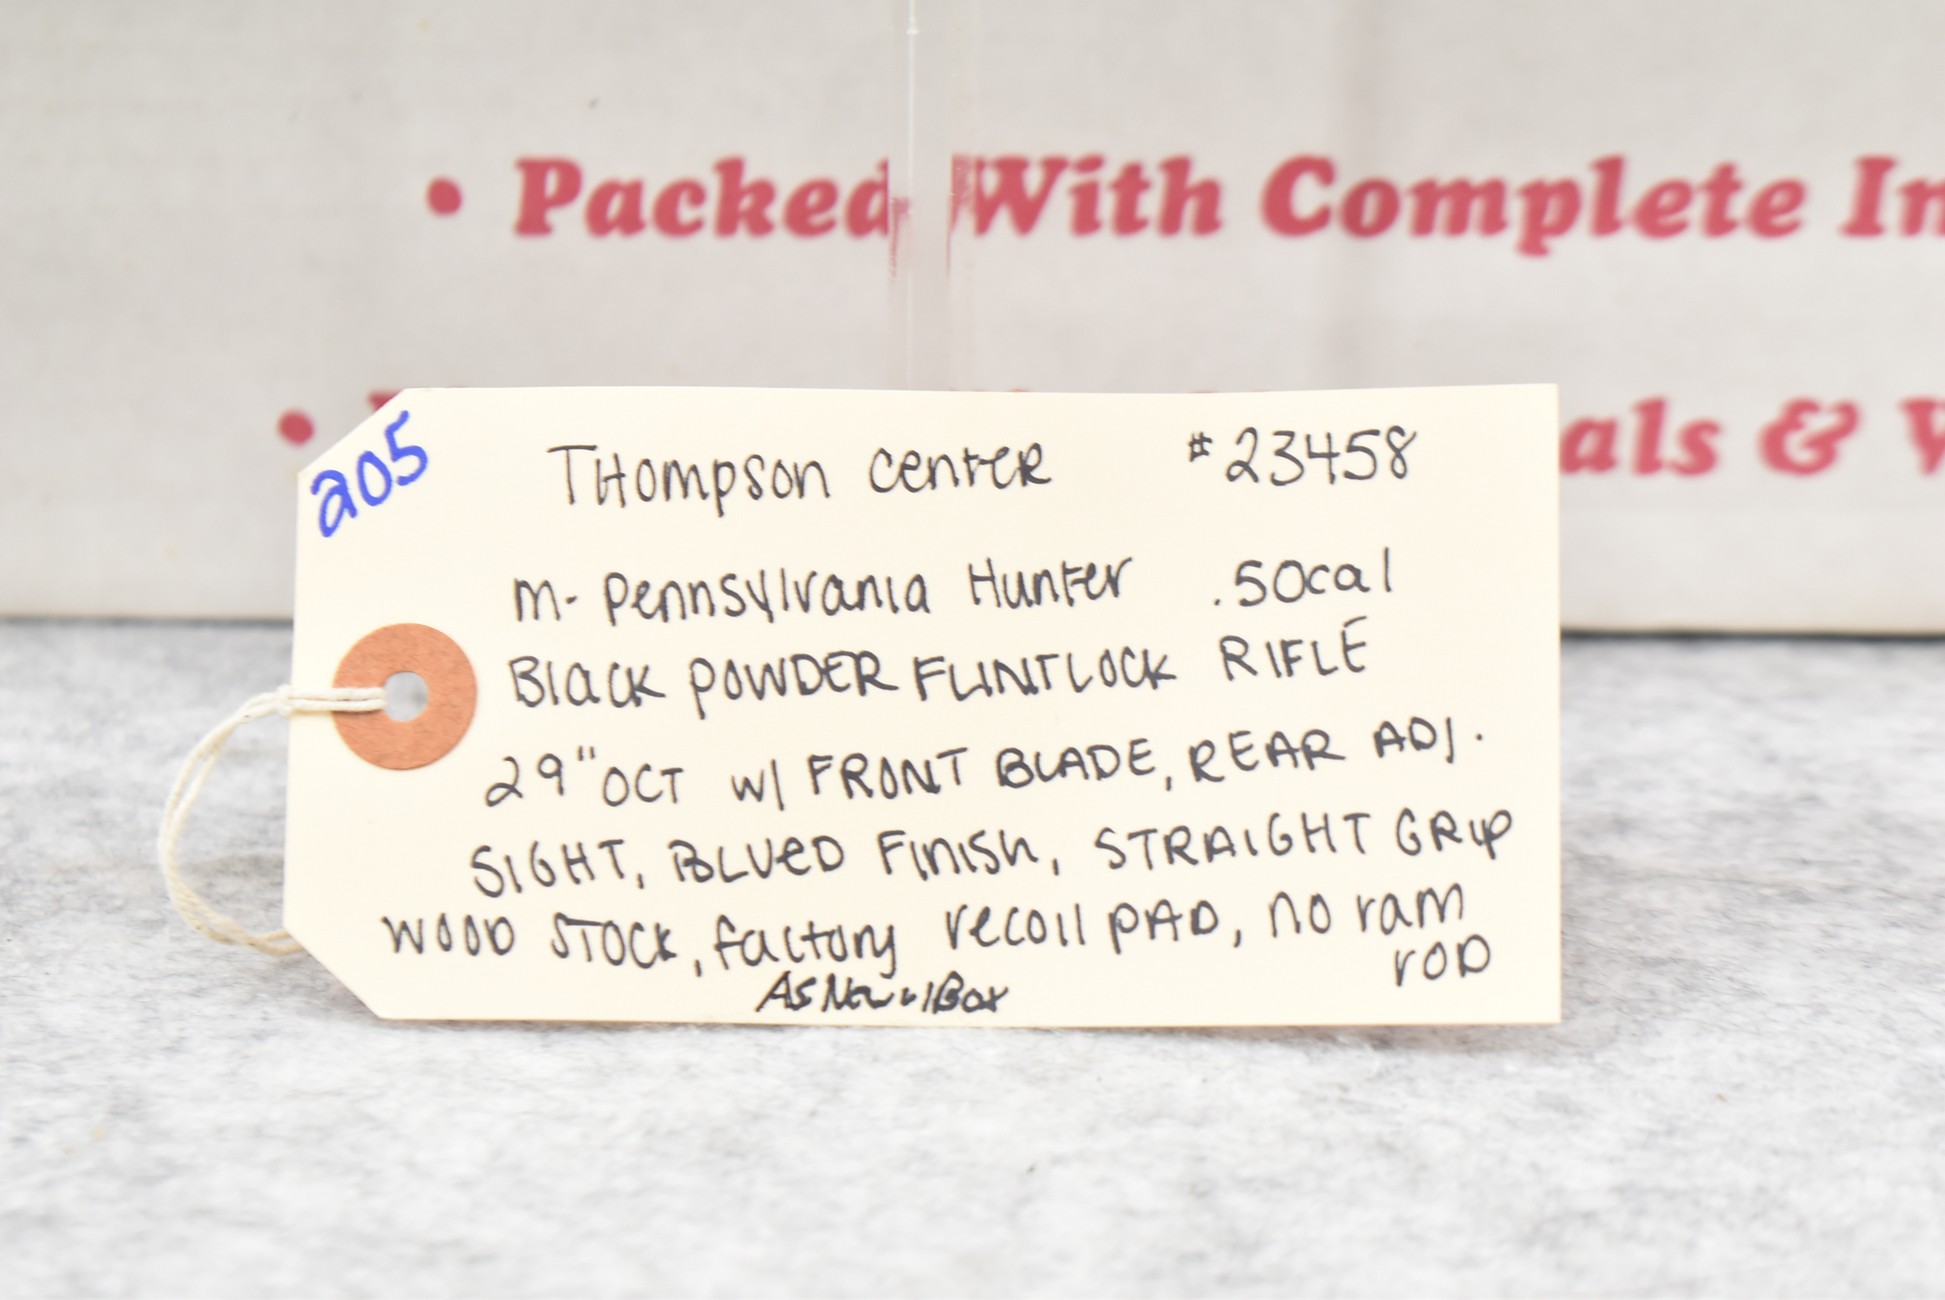 • Packed With Complete In
• als & W
205
THompson center #23458
m- Pennsylvania Hunter .50cal
Black POWDER FLINTLOCK RIFLE
29" OCT w/ FRONT BLADE, REAR ADJ.
SIGHT, BLUED Finish, STRAIGHT GRIP
WOOD STOCK, factory recoil PAD, no ram
rod
As New w/Box